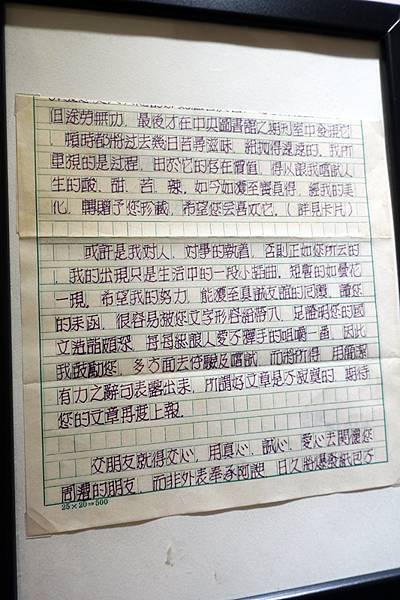 但徒勞無功，最後才在中央圖書館之期刊室中發現它
，頓時都將過去幾日苦尋滋味，組拋得遠遠的。我所
重視的是過程，由於它的存在價值，得以讓我嚐試人
生的酸、甜、苦、辣，如今如獲至寶真得，經我的美
化，轉贈予您形藏，希望您会喜歡它。（詳見卡片）
或許是我对人、对學的執着，否則正如您所云的
，我的出現只是生活中的一段小插曲，短暫的如曇花
一現。希望我的努力，能獲至真誠友誼的回饋，讀您
的來函，很容易被您文字形容給帶入，足證明您的國
文造詣頗深，每每總讓人愛不釋手的咀嚼一遍，因此
我鼓勵您，多方面去
及嚐試，而將所得，用簡潔
有力之辭句表露出來，所謂好文章是不寂寞的，期待
您的文章再度上報。
交朋友就得交心，用真心、誠心、愛心去関懷您
周遭的朋友，而非外表奉承阿諛，日久將爆發紙包不
25×20=500